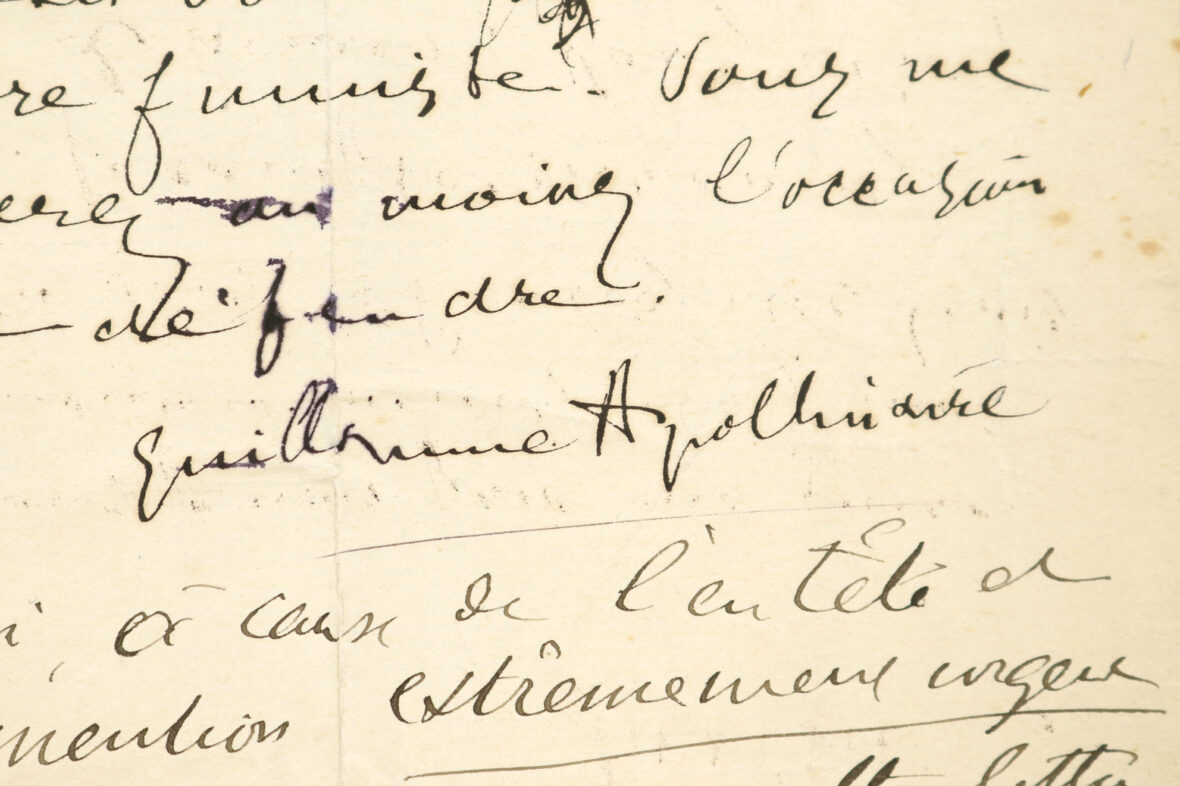 re fumiste. Vous me
erez au moins l'occasion
défendre.
Guillaume Apollinaire
i, à cause de l'entête et
mention extrêmement urgent
lettre